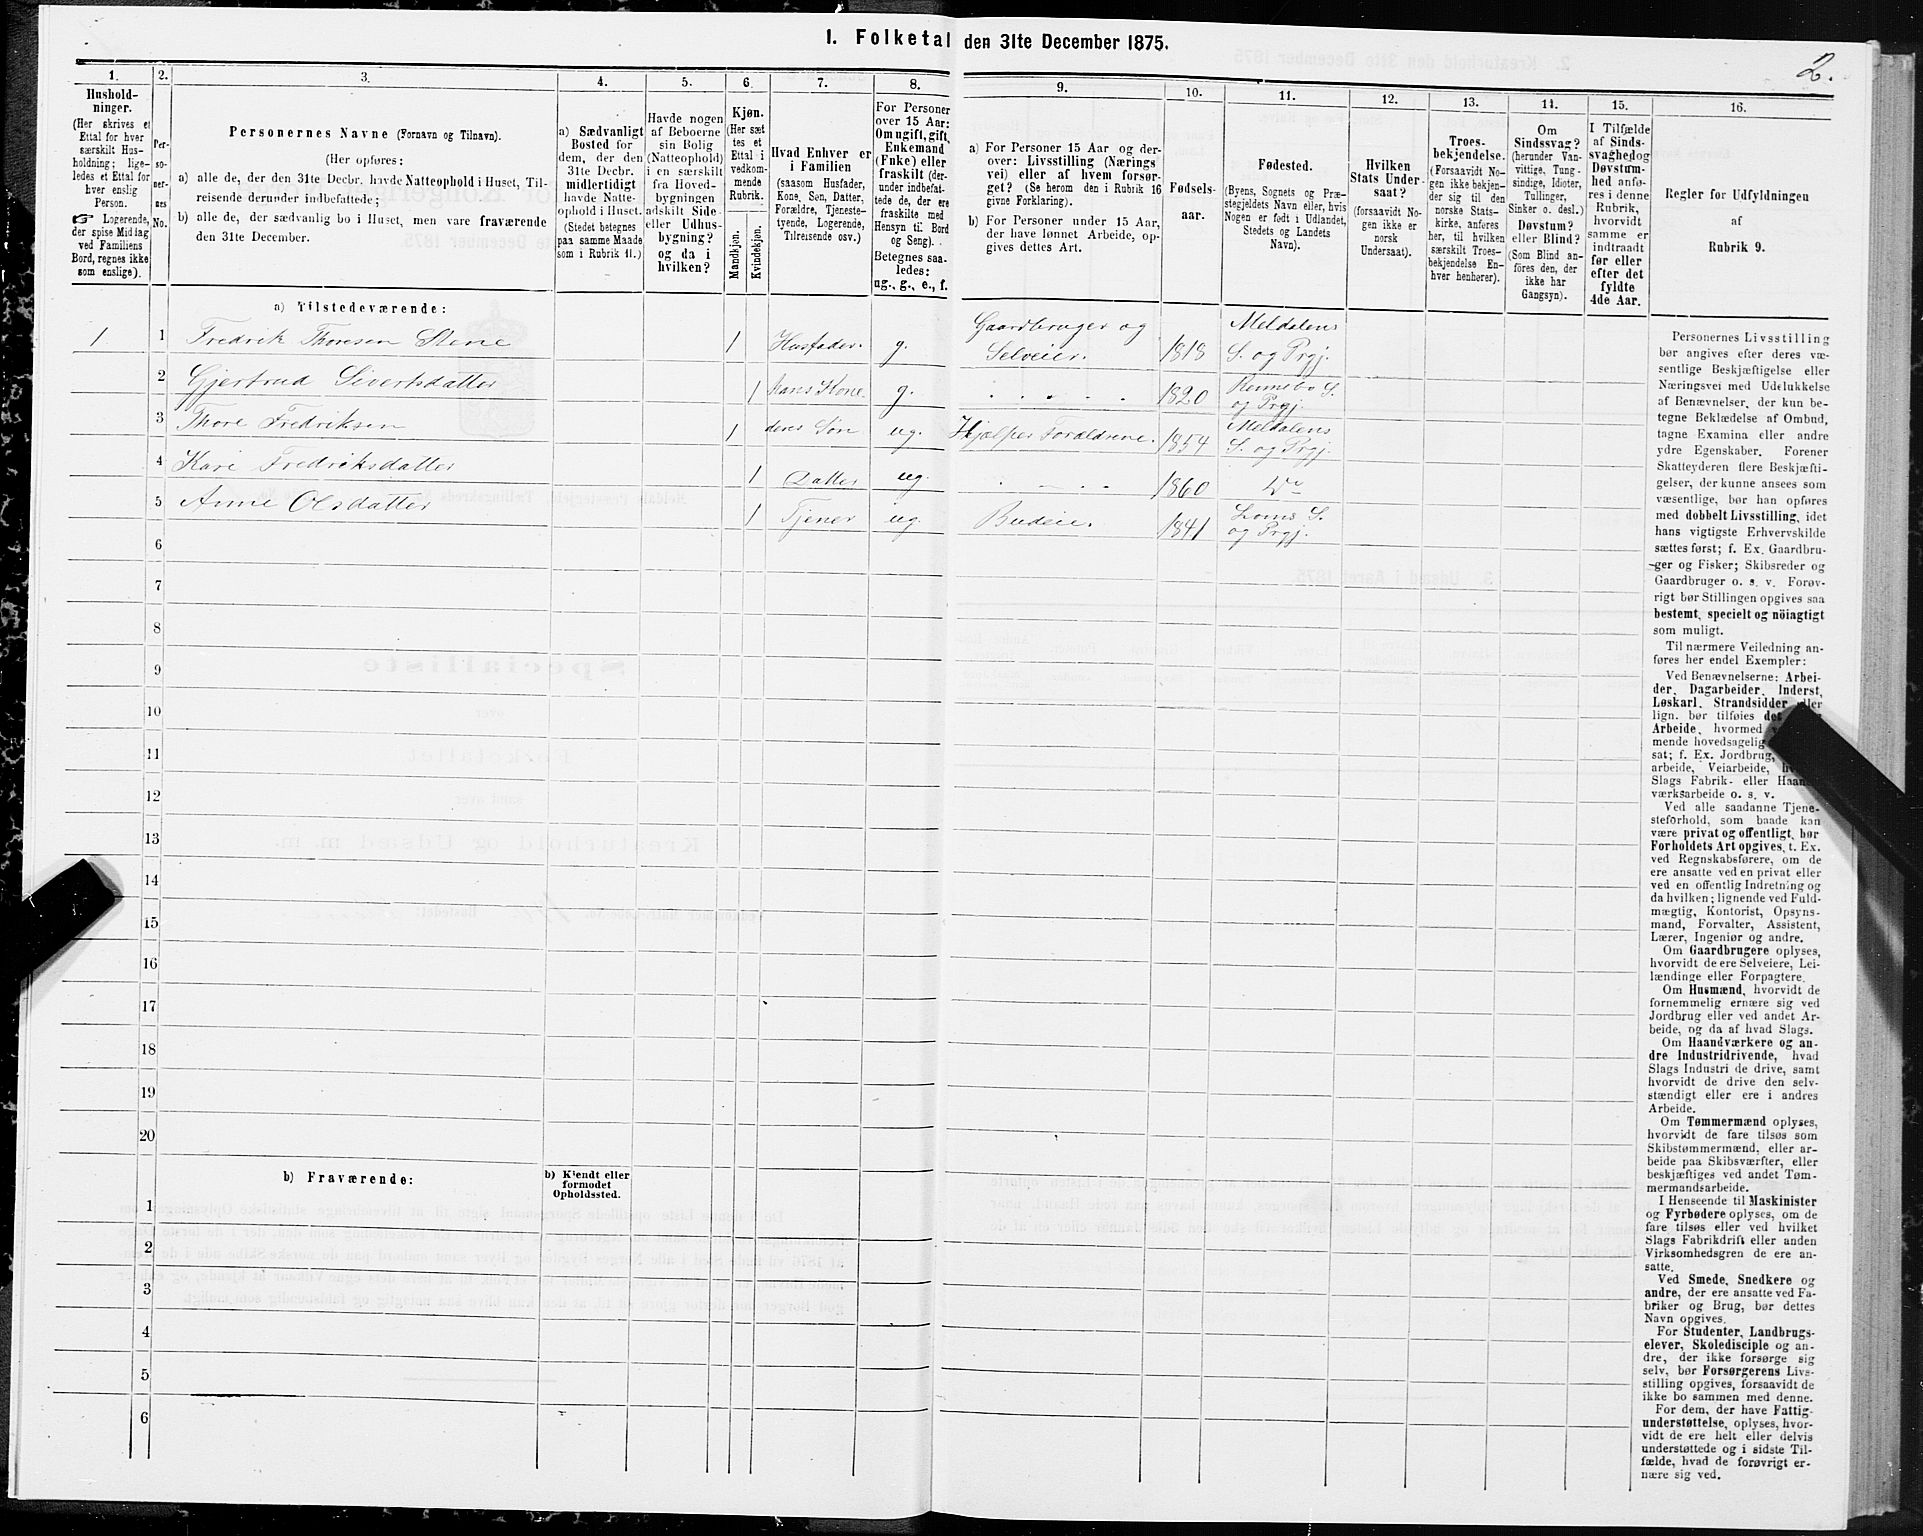 I. Folketal den 31te December 1875.
2.
1.
Hushold-
ninger.
(Her skrives et
Ettal for hver
særskilt Hus-
holdning; lige-
ledes et Ettal for
hver enslig
Person.
☞ Logerende,
der spise Middag
ved Familiens
Bord, regnes ikke
som enslige).
2.
Per-
so-
ner-
nes
No.
3.
Personernes Navne (Fornavn og Tilnavn).
(Her opføres:
a) alle de, der den 31te Decbr. havde Natteophold i Huset, Til-
reisende derunder indbefattede;
b) alle de, der sædvanlig bo i Huset, men vare fraværende
den 31te December.
4.
a) Sædvanligt
Bosted for
dem, der den
31te Decbr.
midlertidigt
havde Natte-
ophold i Huset.
(Stedet betegnes
paa samme Maade
som i Rubrik 11.)
5.
Havde nogen
af Beboerne
sin Bolig
(Natteophold)
i en særskilt
fra Hoved-
bygningen
adskilt Side-
eller Udhus-
bygning?
og da i
hvilken?
6.
Kjøn.
(Her sæt-
tes et
Ettal i
vedkom-
mende
Rubrik.
Mandkjøn.
Kvindekjøn.
7.
Hvad Enhver er
i Familien
(saasom Husfader,
Kone, Søn, Datter,
Forældre, Tjeneste-
tyende, Logerende,
Tilreisende osv.)
8.
For Personer
over 15 Aar:
Om ugift, gift,
Enkemand
(Enke) eller
fraskilt (der-
under indbefat-
tede de, der ere
fraskilte med
Hensyn til Bord
og Seng).
Betegnes saa-
ledes:
ug., g., e., f.
9.
a) For Personer 15 Aar og der-
over: Livsstilling (Nærings-
vei) eller af hvem forsør-
get? (Se herom den i Rubrik 16
givne Forklaring).
b) For Personer under 15 Aar,
der have lønnet Arbeide, op-
gives dettes Art.
10.
Fødsels-
aar.
11.
Fødested.
(Byens, Sognets og Præ-
stegjeldets Navn eller, hvis
Nogen er født i Udlandet,
Stedets og Landets
Navn).
12.
Hvilken
Stats Under-
saat?
(forsaavidt No-
gen ikke er
norsk
Undersaat).
13.
Troes-
bekjendelse.
(Forsaavidt No-
gen ikke bekjen-
der sig til den
norske Stats-
kirke, anføres
her, til hvilken
særskilt Troes-
bekjendelse En-
hver henhører).
14.
Om
Sindssvag?
(herunder Van-
vittige, Tung-
sindige, Idioter,
Tullinger,
Sinker o. desl.)
Døvstum?
eller Blind?
(Som Blind an-
føres den, der
ikke har
Gangsyn).
15.
I Tilfælde
af Sinds-
svaghed og
Døvstum-
hed anfø-
res i denne
Rubrik,
hvorvidt
samme er
indtraadt
før eller
efter det
fyldte
4de Aar.
16.
Regler for Udfyldningen
af
Rubrik 9.
a) Tilstedeværende:
1 1 Fredrik Thoresen Stene 1 Husfader. g. Gaardbruger og Selveier. 1818 Meldalens S. og Prgj.
2 Gjertrud Sivertsdatter 1 hans Kone g. " " " " " 1820 Rennebo S. og Prgj.
3 Thore Fredriksen 1 deres Søn ug. Hjælper Forældrene. 1854 Meldalens S. og Prgj.
4 Kari Fredriksdatter 1 Datter ug. " " " " 1860 Do
5 Anne Olsdatter 1 Tjener ug. Budeie. 1841 Loms S. og Prgj.
6
7
8
9
10
11
12
13
14
15
16
17
18
19
20
b) Fraværende:
b) Kjendt eller
formodet
Opholdssted.
1
2
3
4
5
6
Personernes Livsstilling
bør angives efter deres væ-
sentlige Beskjæftigelse eller
Næringsvei med Udelukkelse
af Benævnelser, der kun be-
tegne Beklædelse af Ombud,
tagne Examina eller andre
ydre Egenskaber. Forener
Skatteyderen flere Beskjæfti-
gelser, der kunne ansees som
væsentlige, bør han opføres
med dobbelt Livsstilling, idet
hans vigtigste Erhvervskilde
sættes først; f. Ex. Gaardbru-
ger og Fisker; Skibsreder og
Gaardbruger o. s. v. Forøv-
rigt bør Stillingen opgives saa
bestemt, specielt og nöiagtigt
som muligt.
Til nærmere Veiledning an-
føres her endel Exempler:
Ved Benævnelserne: Arbei-
der, Dagarbeider, Inderst,
Løskarl, Strandsidder eller
lign. bør tilføies det
Arbeide, hvormed
mende hovedsagelig
sat; f. Ex. Jordbrug,
arbeide, Veiarbeide,
Slags Fabrik- eller Haand-
værksarbeide o. s. v.
Ved alle saadanne Tjene-
steforhold, som baade kan
være privat og offentligt, bør
Forholdets Art opgives, t. Ex.
ved Regnskabsførere, om de
ere ansatte ved en privat eller
ved en offentlig Indretning og
da hvilken; lignende ved Fuld-
mægtig, Kontorist, Opsyns-
mand, Forvalter, Assistent,
Lærer, Ingeniør og andre.
Om Gaardbrugere oplyses,
hvorvidt de ere Selveiere, Lei-
lændinge eller Forpagtere.
Om Husmænd, hvorvidt de
fornemmelig ernære sig ved
Jordbrug eller ved andet Ar-
beide, og da af hvad Slags.
Om Haandværkere og an-
dre Industridrivende, hvad
Slags Industri de drive, samt
hvorvidt de drive den selv-
stændigt eller ere i andres
Arbeide.
Om Tømmermænd oplyses,
hvorvidt de fare tilsøs som
Skibstømmermænd, eller ar-
beide paa Skibsværfter, eller
beskjæftiges ved andet Tøm-
mermandsarbeide.
I Henseende til Maskinister
og Fyrbødere oplyses, om de
fare tilsøs eller ved hvilket
Slags Fabrikdrift eller anden
Virksomhedsgren de ere an-
satte.
Ved Smede, Snedkere og
andre, der ere ansatte ved Fa-
briker og Brug, bør dettes
Navn opgives.
For Studenter, Landbrugs-
elever, Skoledisciple og an-
dre, der ikke forsørge sig
selv, bør Forsørgerens Livs-
stilling opgives, forsaavidt de
ikke bo sammen med denne.
For dem, der have Fattig-
understøttelse, oplyses, hvor-
vidt de ere helt eller delvis
understøttede og i sidste Til-
fælde, hvad de forøvrigt er-
nære sig ved.